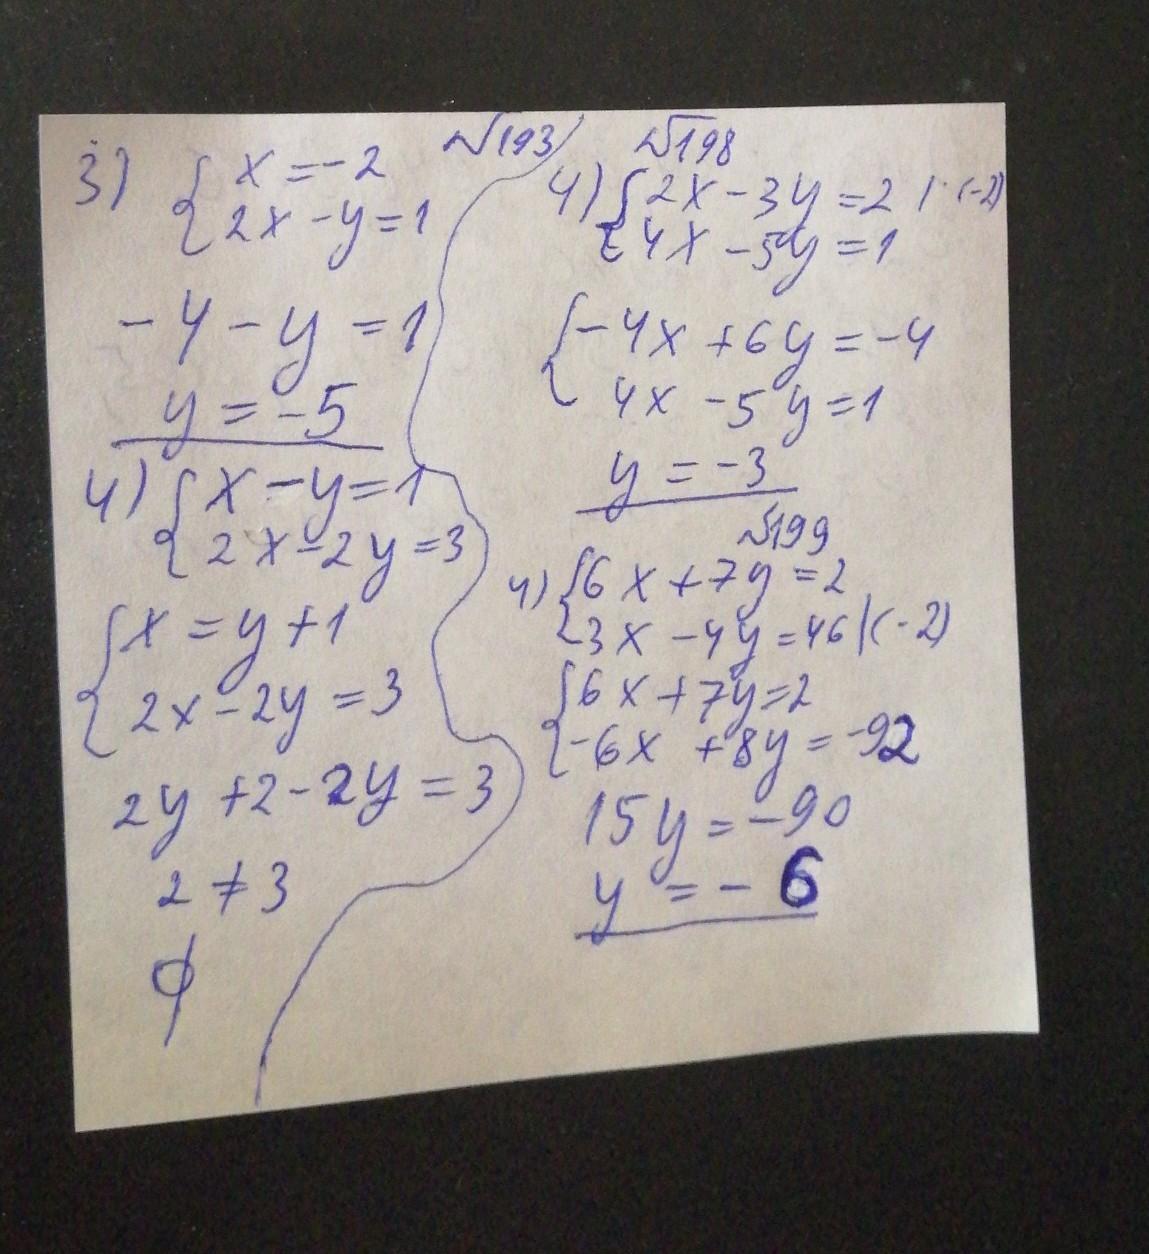 №193
3) { x = -2
2x - y = 1
-4 - y = 1
y = -5
4) { x - y = 1
2x - 2y = 3
{ x = y + 1
2x - 2y = 3
2y + 2 - 2y = 3
2 ≠ 3
∅
№198
4) { 2x - 3y = 2 | · (-2)
4x - 5y = 1
{ -4x + 6y = -4
4x - 5y = 1
y = -3
№199
4) { 6x + 7y = 2
3x - 4y = 46 | (-2)
{ 6x + 7y = 2
-6x + 8y = -92
15y = -90
y = -6